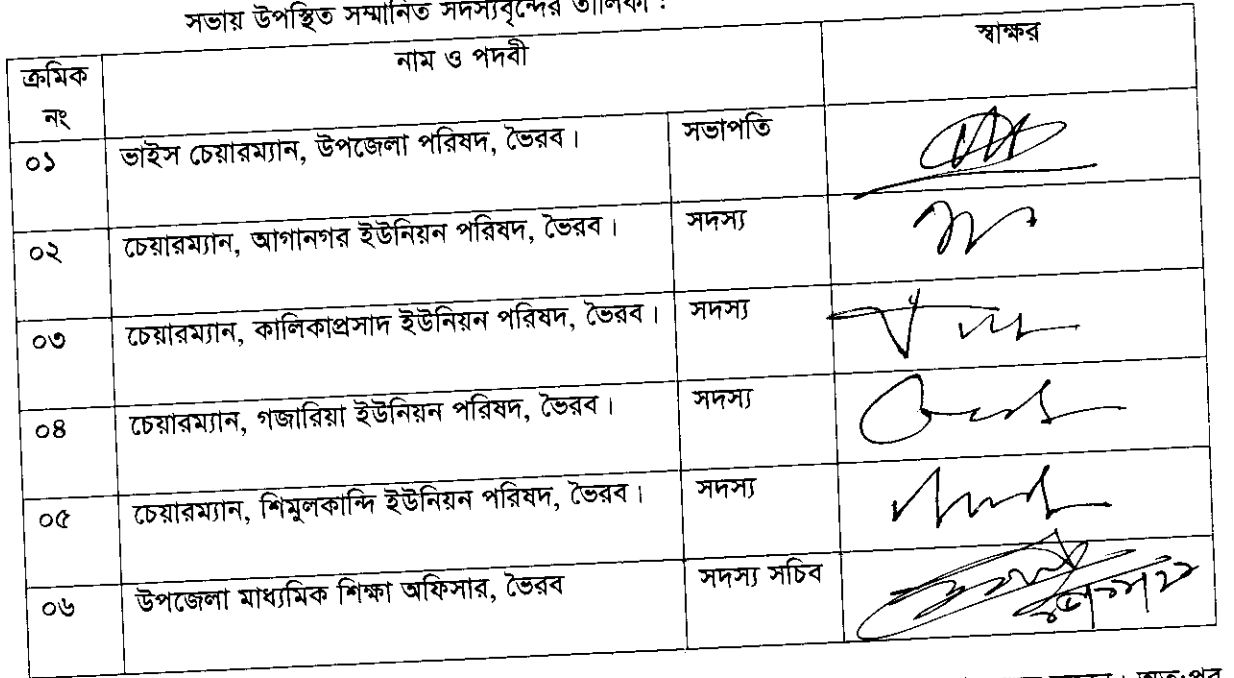 সভায় উপস্থিত সম্মানিত সদস্যবৃন্দের তালিকা :
ক্রমিক নং নাম ও পদবী স্বাক্ষর
০১ ভাইস চেয়ারম্যান, উপজেলা পরিষদ, ভৈরব। সভাপতি
০২ চেয়ারম্যান, আগানগর ইউনিয়ন পরিষদ, ভৈরব। সদস্য
০৩ চেয়ারম্যান, কালিকাপ্রসাদ ইউনিয়ন পরিষদ, ভৈরব। সদস্য
০৪ চেয়ারম্যান, গজারিয়া ইউনিয়ন পরিষদ, ভৈরব। সদস্য
০৫ চেয়ারম্যান, শিমুলকান্দি ইউনিয়ন পরিষদ, ভৈরব। সদস্য
০৬ উপজেলা মাধ্যমিক শিক্ষা অফিসার, ভৈরব সদস্য সচিব